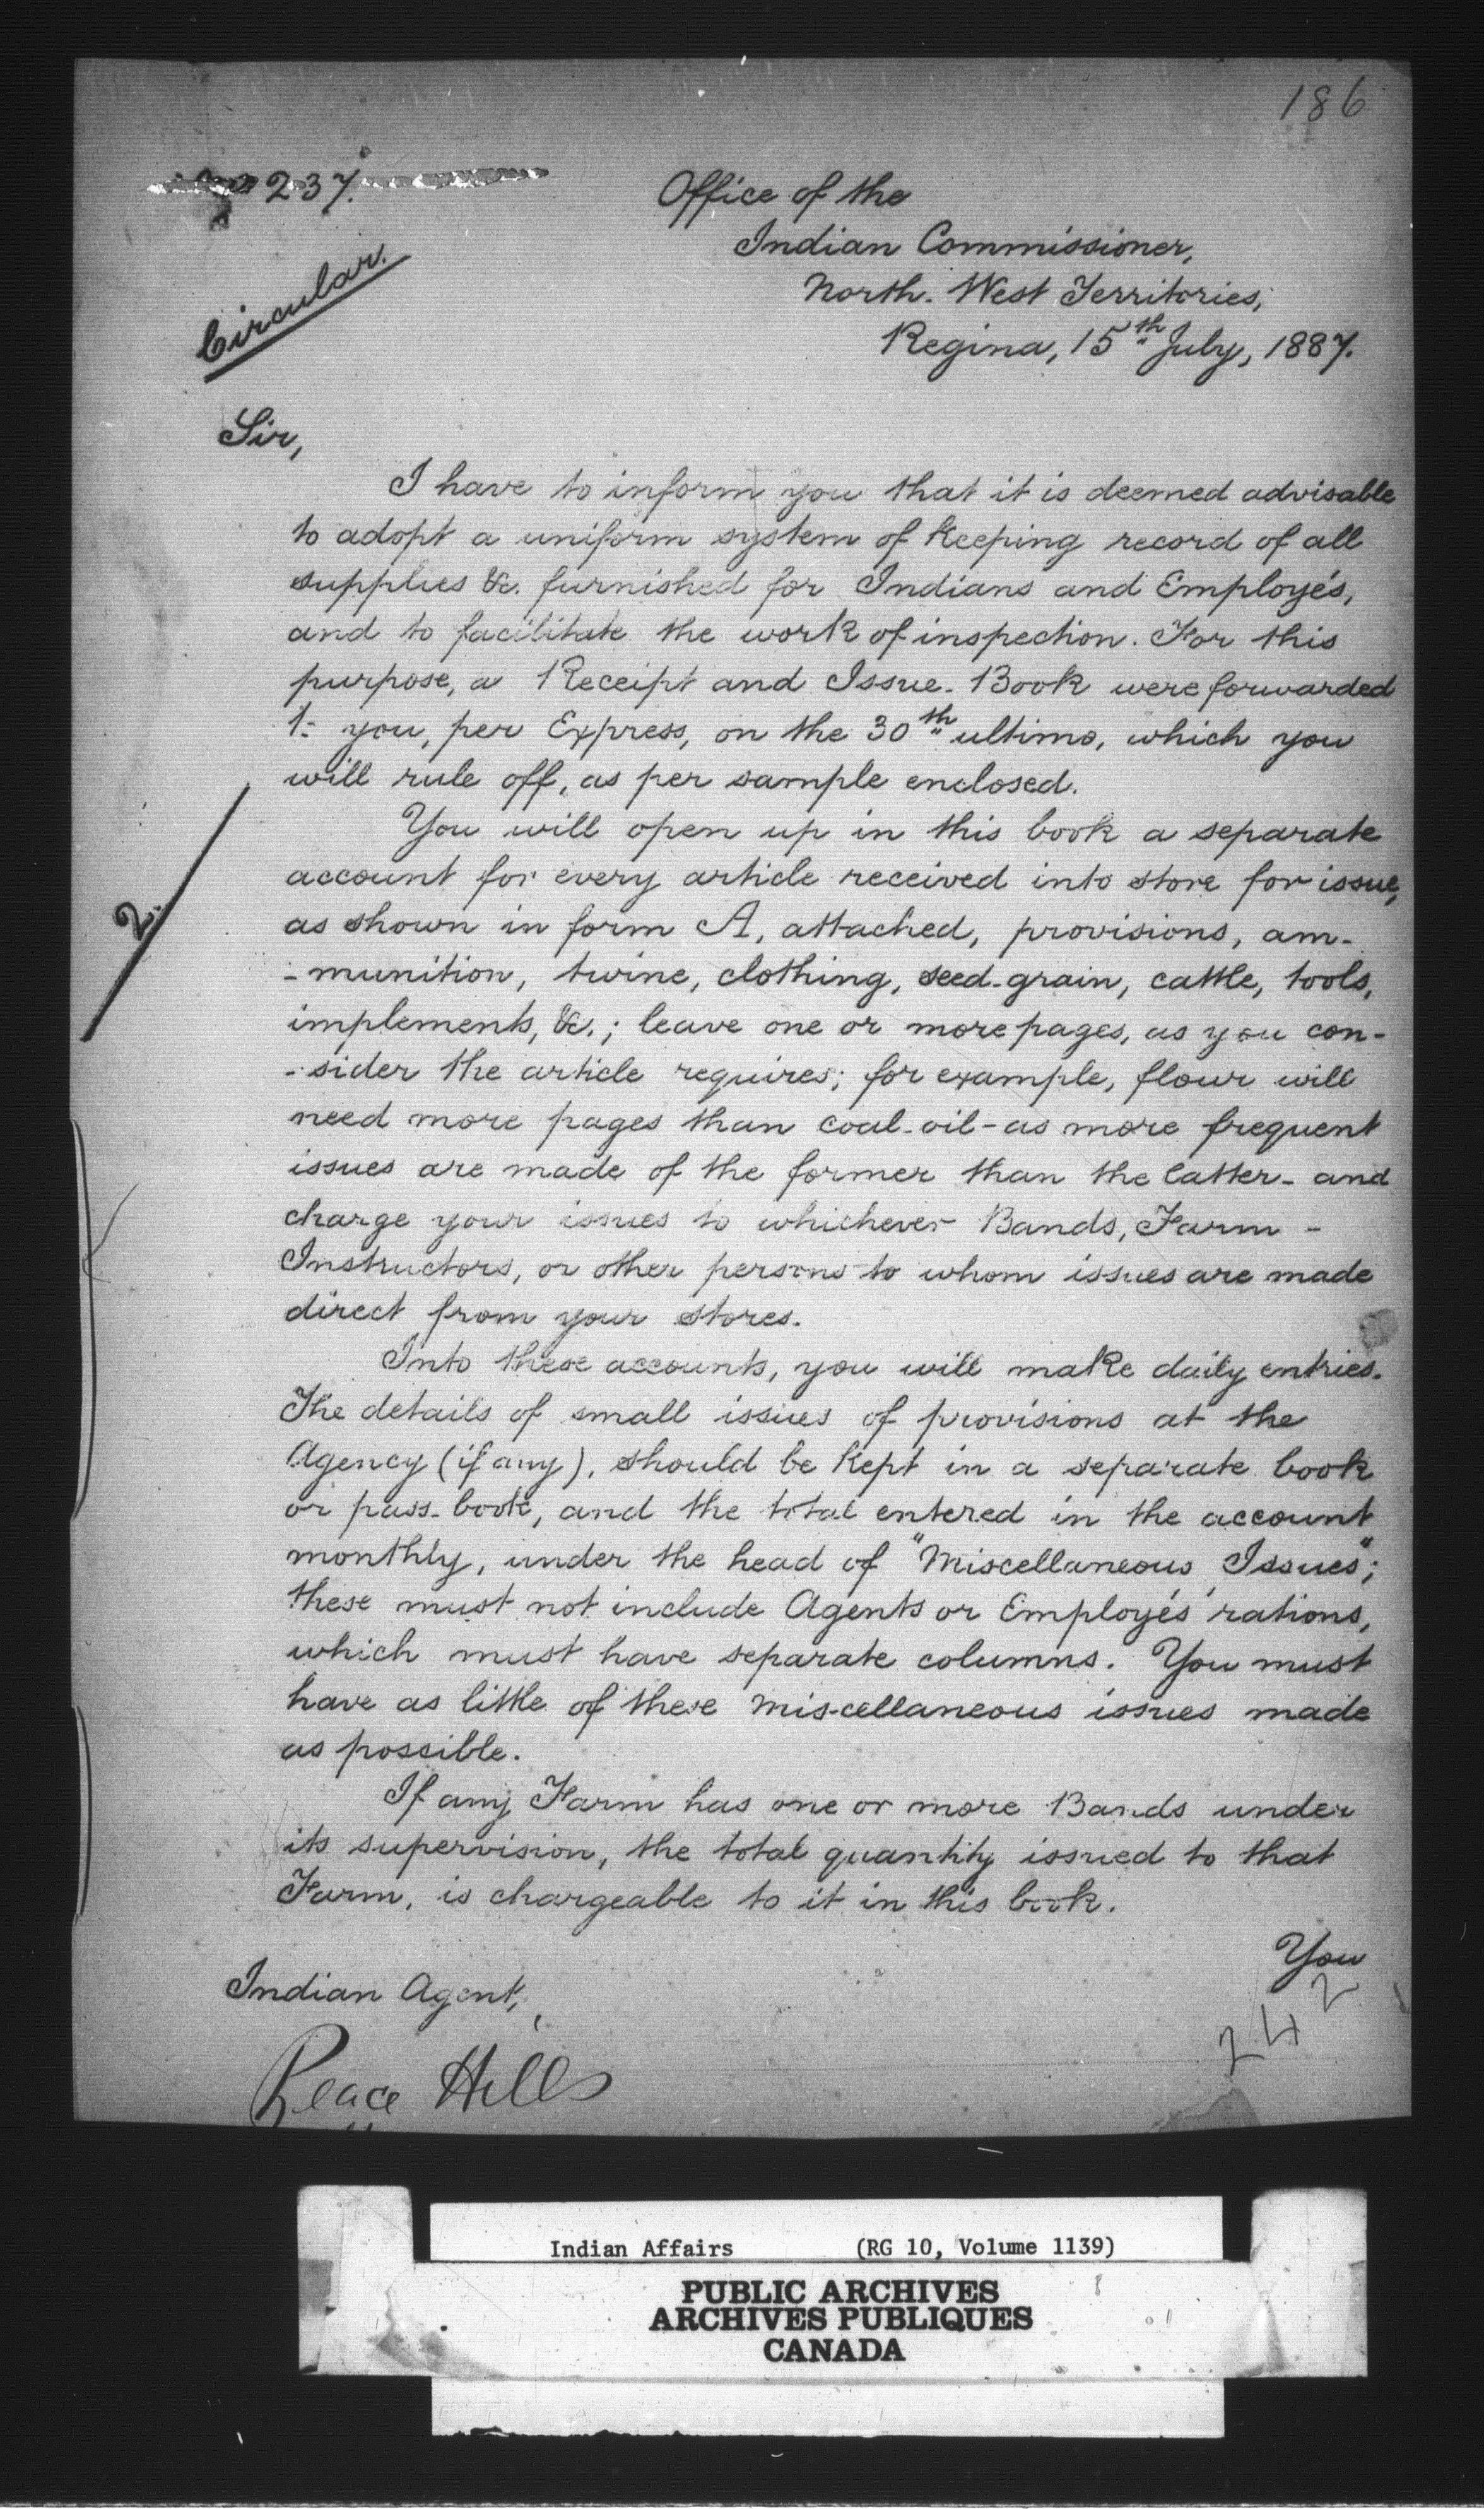 186
237.
Office of the
Indian Commissioner,
North-West Territories,
Circular.
Regina, 15th July, 1887.
Sir,
I have to inform you that it is deemed advisable
to adopt a uniform system of Keeping record of all
supplies &c. furnished for Indians and Employés,
and to facilitate the work of inspection. For this
purpose, a Receipt and Issue-Book were forwarded
to you, per Express, on the 30th ultimo, which you
will rule off, as per sample enclosed.
You will open up in this book a separate
account for every article received into store for issue,
2.
as shown in form A, attached, provisions, am-
-munition, twine, clothing, seed-grain, cattle, tools,
implements, &c.; leave one or more pages, as you con-
-sider the article requires; for example, flour will
need more pages than coal-oil-as more frequent
issues are made of the former than the latter- and
charge your issues to whichever Bands, Farm-
Instructors, or other persons to whom issues are made
direct from your stores.
Into these accounts, you will make daily entries.
The details of small issues of provisions at the
Agency (if any), should be Kept in a separate book
or pass-book, and the total entered in the account
monthly, under the head of "Miscellaneous Issues";
these must not include Agents or Employés rations,
which must have separate columns. You must
have as little of these miscellaneous issues made
as possible.
If any Farm has one or more Bands under
its supervision, the total quantity issued to that
Farm, is chargeable to it in this book.
You
Indian Agent,
242
Peace Hills
Indian Affairs (RG 10, Volume 1139)
PUBLIC ARCHIVES
ARCHIVES PUBLIQUES
CANADA